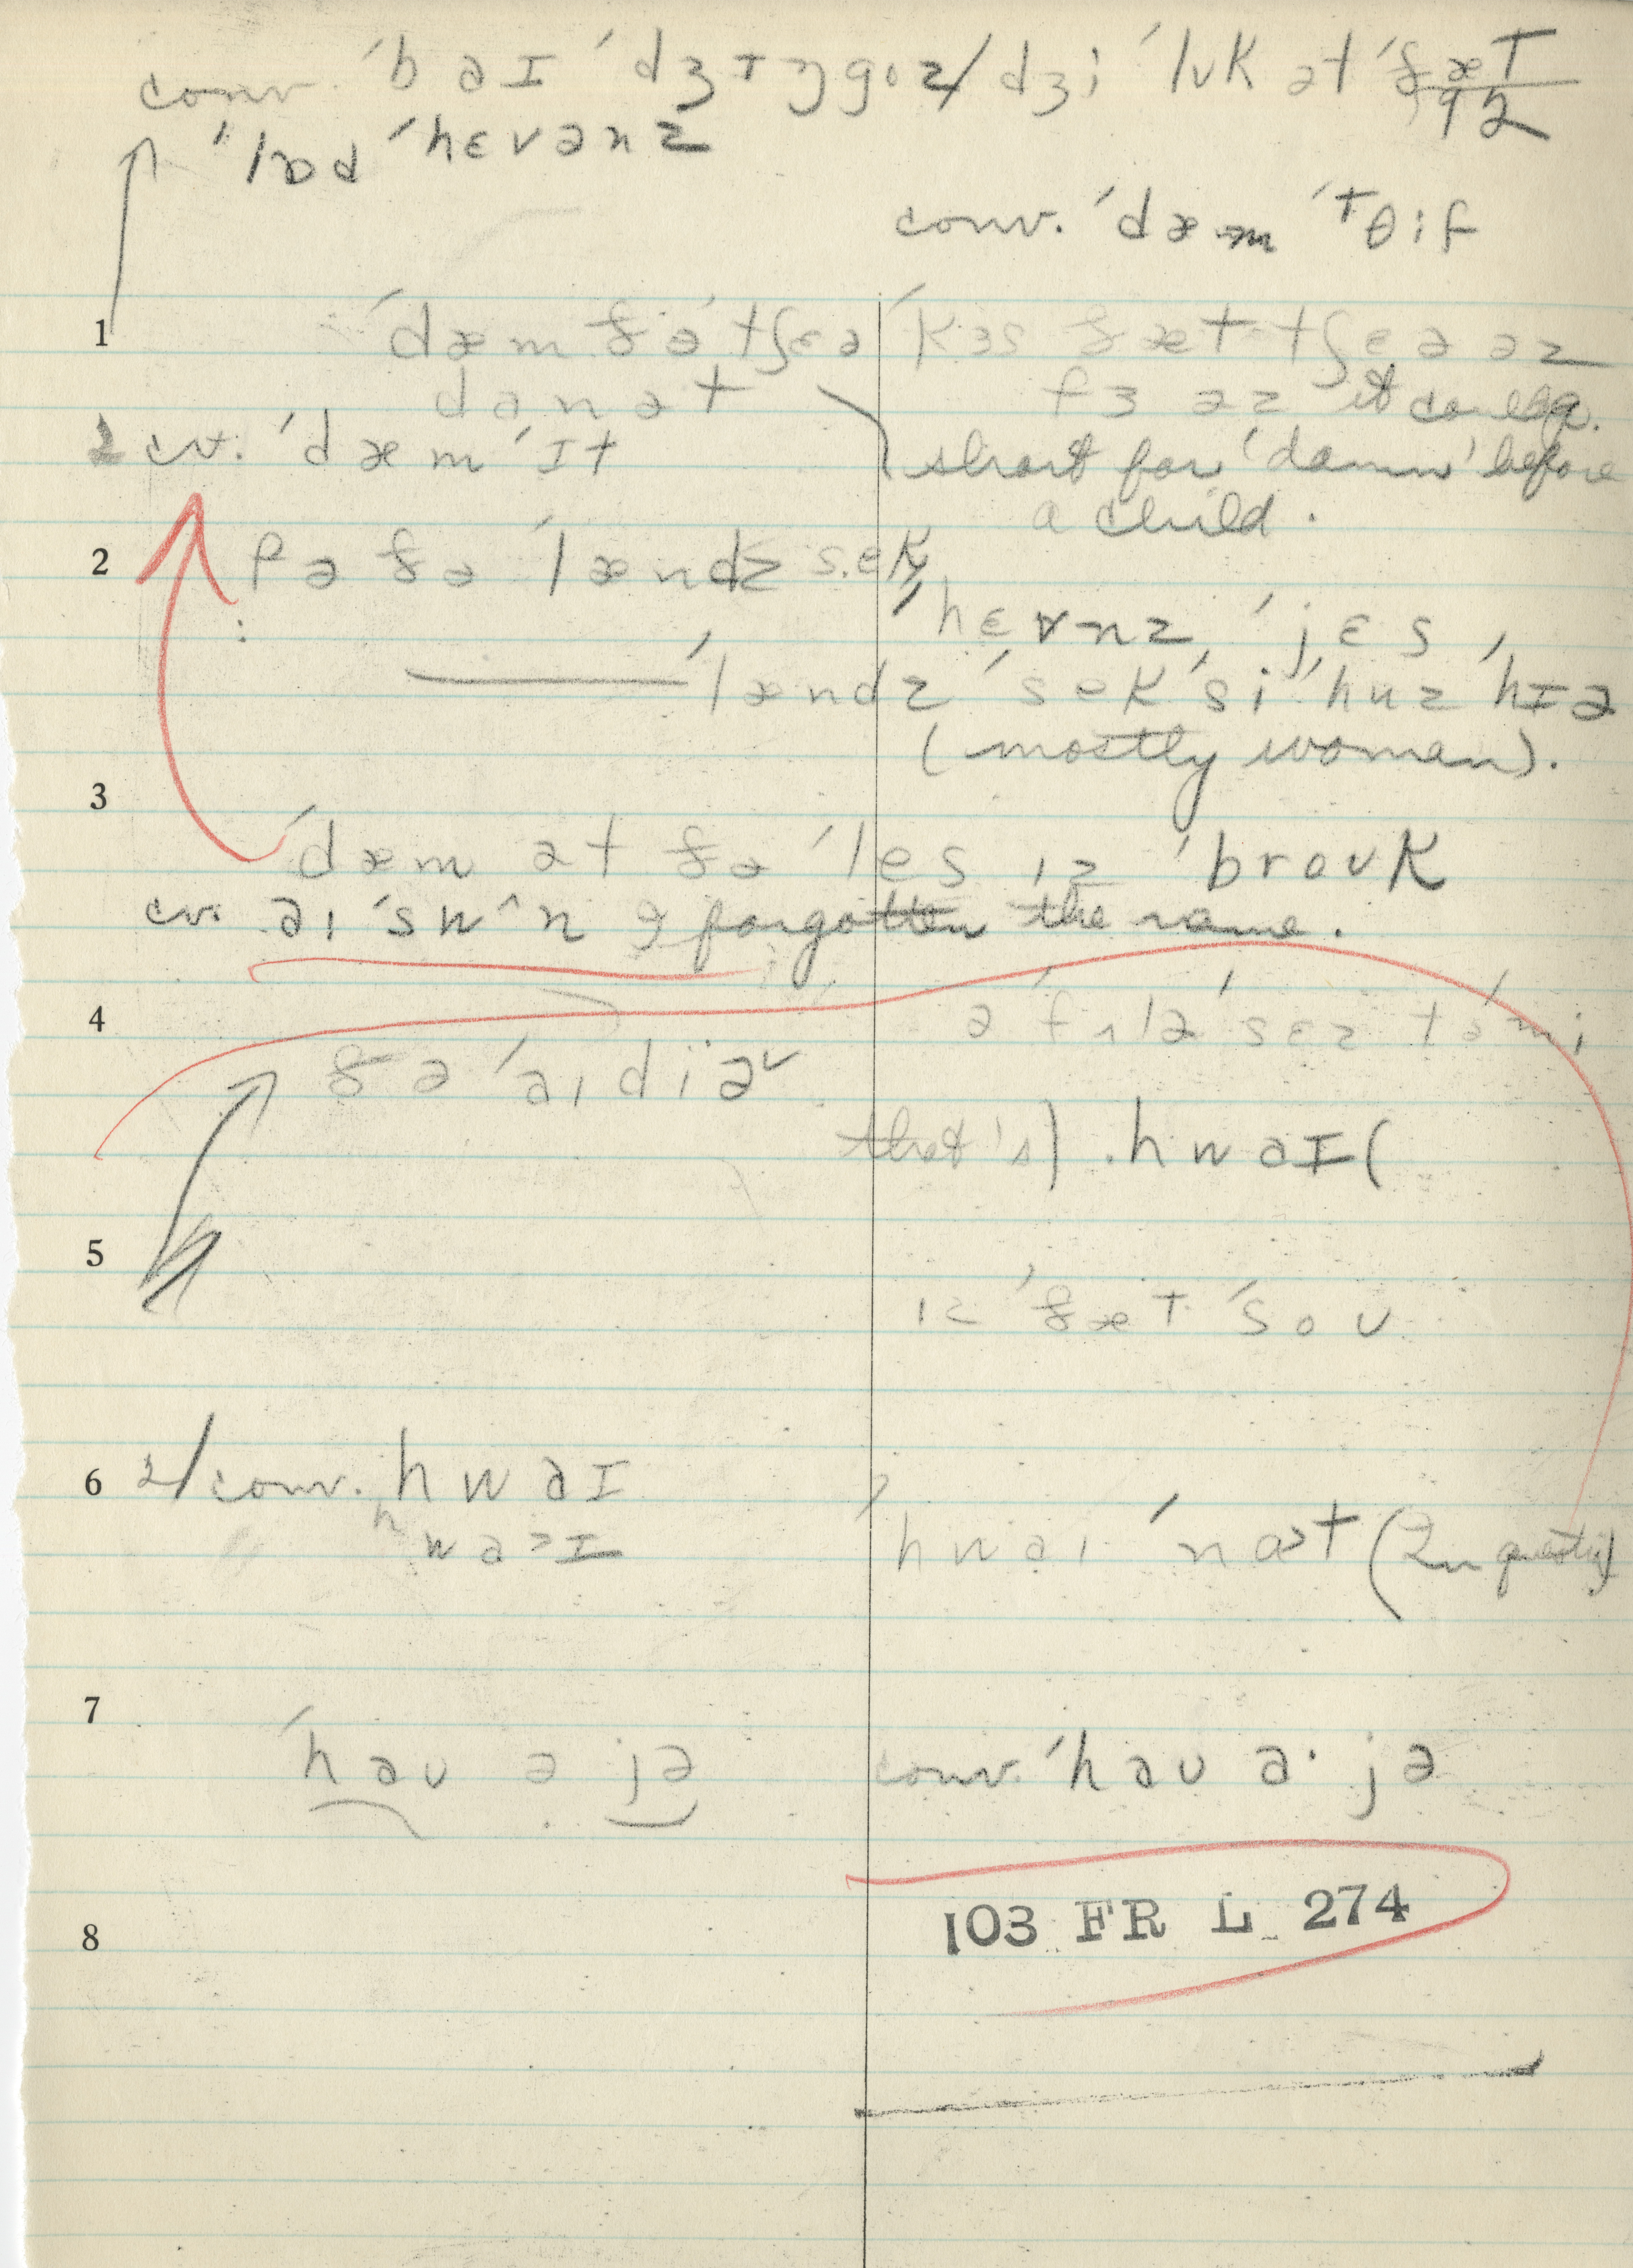 conv. ˈbaɪ ˈdʒɪŋgoz/dʒi ˈlʊk ət ðæt
92
ˈlɒd ˈhɛvənz
conv. ˈdæm ˈθif
1 ˈdæm ðə ˈtʃɛə ˈkɜs ðæt tʃɛə əz
danət fɜ əz
2 cv. ˈdæm ˈɪt short for 'damn' before
a child.
2 fə ðə ˈlændz sek
ˈhɛvnz ˈjɛs
ˈlændz ˈsek ˈsi ˈhuz ˈhɪə
(mostly women).
3
ˈdæm ət ðə ˈles ɪz ˈbroʊk
cv. aɪ ˈswʌn I forgotten the name.
4 ə ˈfʌlə ˈsɛz tə mi
ðə ˈaɪdiə
that's) hwaɪ(
5
ɪz ˈðæt ˈsoʊ
6 2/ conv. hwaɪ
hwaɪ ˈnɒt (In
7
ˈhaʊ ə jə conv. ˈhaʊ a· jə
8 103 FR L 274